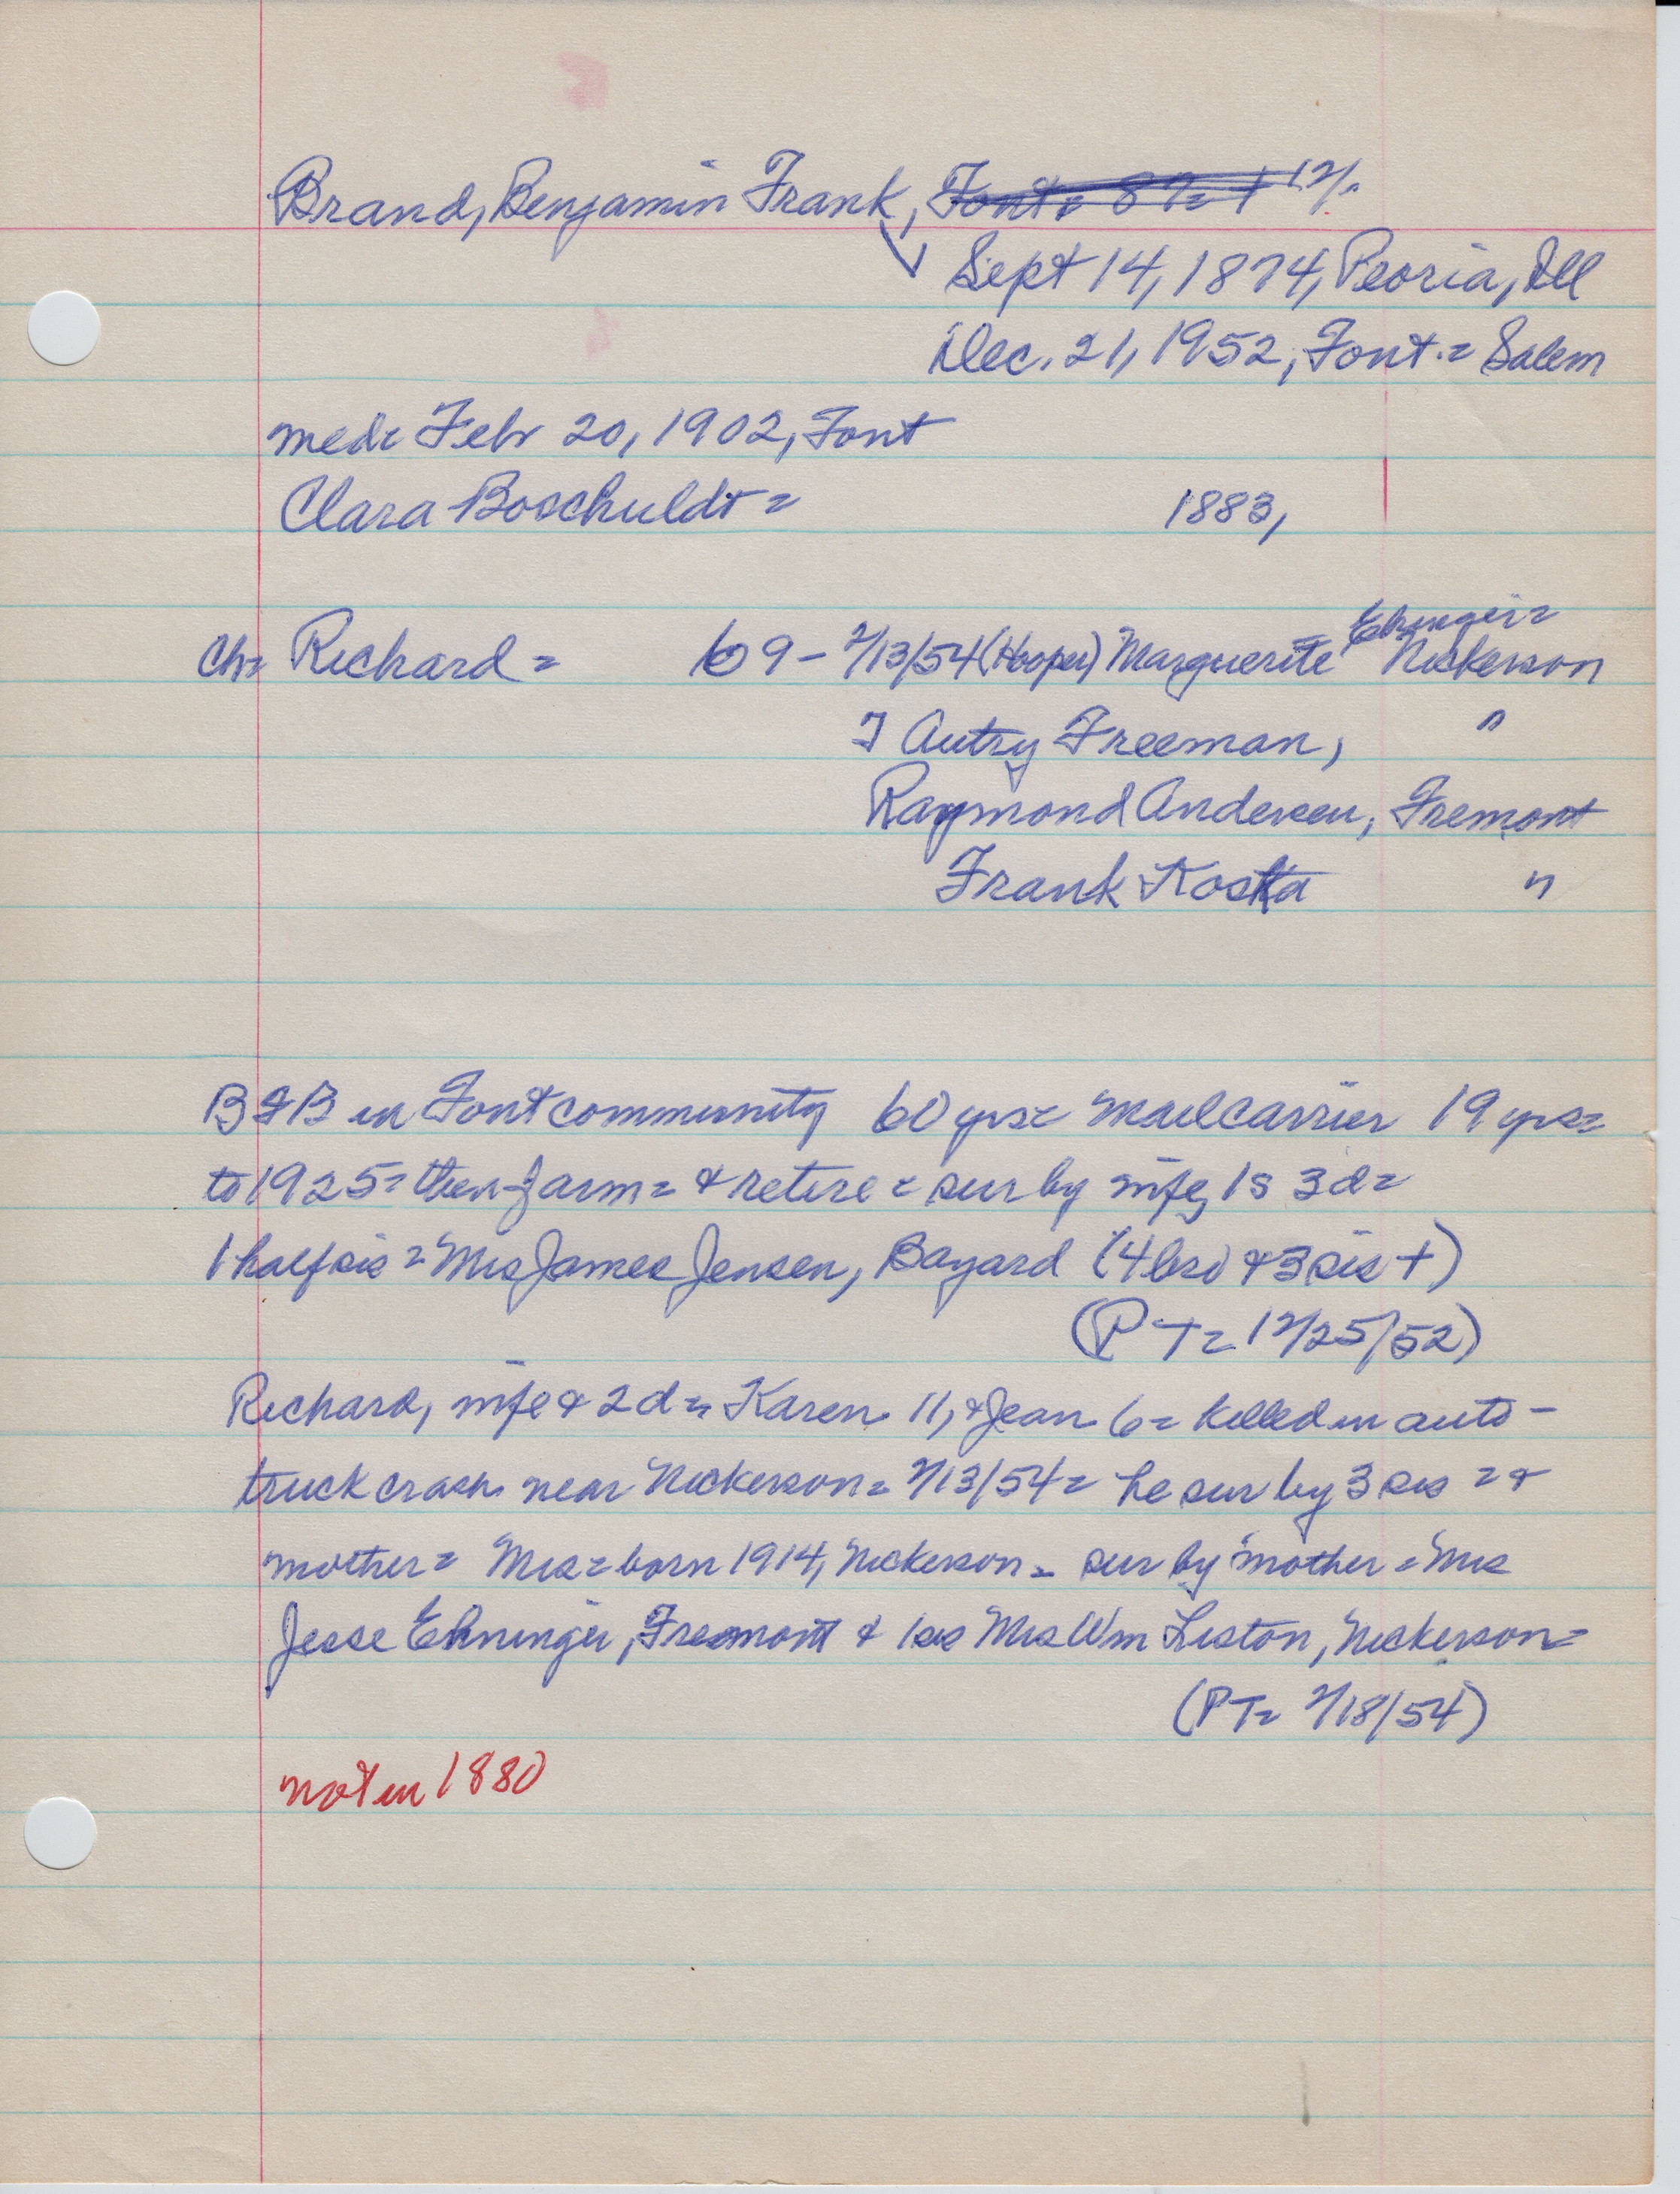 Brand, Benjamin Frank,
Sept 14, 1874, Peoria, Ill
Dec. 21, 1952, Font = Salem
med = Febr 20, 1902, Font
Clara Boschuldt = 1883,
Ehninger =
Ch = Richard = 09 - 7/13/54 (Hooper) Marguerite Nickerson
Autry Freeman, "
Raymond Andersen, Fremont
Frank Koska "
B F B in Font community 60 yrs = Mailcarrier 19 yrs =
to 1925 = then farm = & retire = sur by wife, 1 s 3 d =
1 half sis = Mrs James Jensen, Bayard (4 bro & 3 sis +)
(PT = 12/25/52)
Richard, wife & 2 d = Karen 11, & Jean 6 = killed in auto-
truck crash near Nickerson = 7/13/54 = he sur by 3 sis = &
mother = Mrs = born 1914, Nickerson = sur by mother = Mrs
Jesse Ehninger, Fremont & 1 sis Mrs Wm Liston, Nickerson =
(PT = 7/18/54)
not in 1880